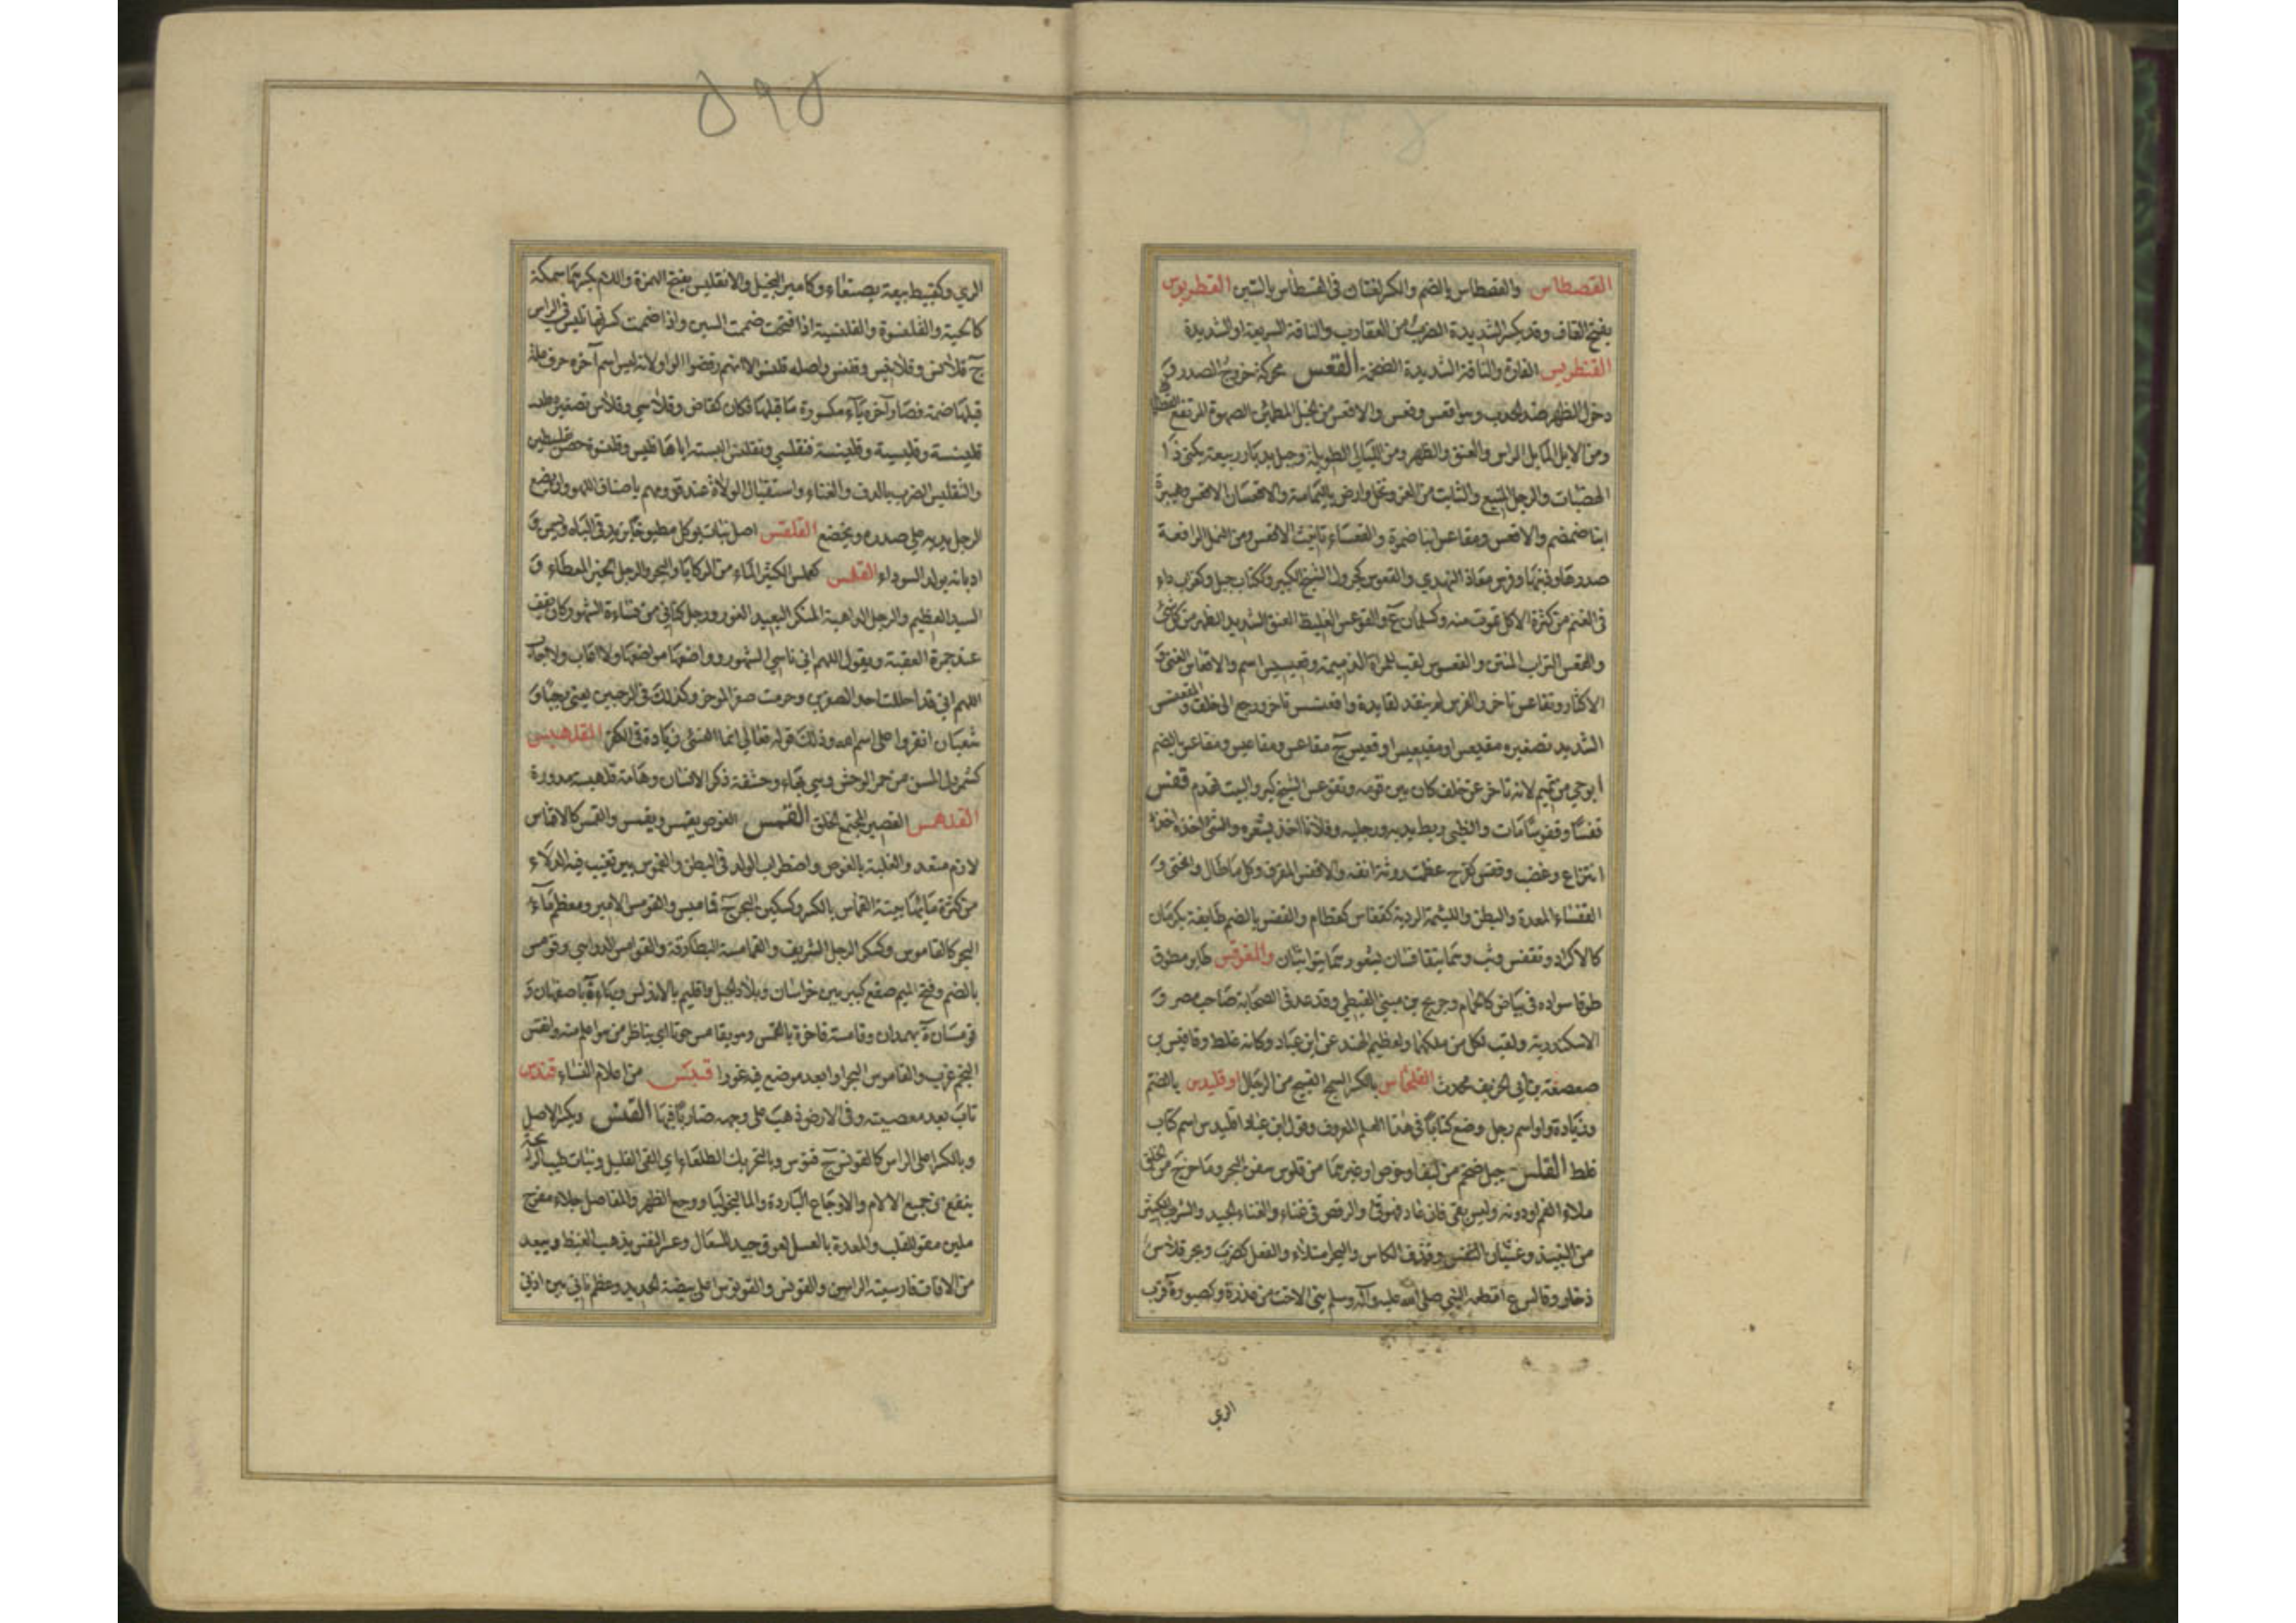 القصطاس والقصطاس بالضم والكسر لغتان فى القسطاس بالسين القطربوس
بفتح القاف وقد يكسر الشديدة الضرب من العقارب والناقة السريعة او الشديدة
القنطريس الفارة والناقة الشديدة الضخمة القعس محركة خروج الصدر و
دخول الظهر ضد الحدب وهو اقعس وقعس والاقعس من الخيل المطمئن الصهوة المرتفع القطاة
ومن الابل المايل الراس والعنق والظهر ومن الليالى الطويلة وجبل بديار ربيعة يكنى ذا
الهضبات والرجل المنيع والثابت من العز ونخل وارض باليمامة والاقعسان الاقعس وهبيرة
ابنا ضمضم والاقعس ومقاعس ابنا ضمرة والقعساء تانيث الاقعس ومن النمل الرافعة
صدرها وذنبها وفرس معاذ النهدي والقعوس كجرول الشيخ الكبير وككتاب جبل وكغراب داء
فى الغنم من كثرة الاكل تموت منه وكسلمان ع والقوعس الغليظ العنق الشديد الظهر من كل شئ
والقعس التراب المنتن والقعسوس لقب للمراة الذميمة وقعيسيس اسم والاقعاس الغنى و
الاكثار وتقاعس تاخر والفرس لم ينقد لقايده واقعنسس تاخر ورجع الى خلف والمقعنسس
الشديد تصغيره مقيعس او مقيعيس او قعيس ج مقاعس ومقاعيس ومقاعس بالضم
ابو حي من تميم لانه تاخر عن حلف كان بين قومه وتقوعس الشيخ كبر والبيت تهدم قفس
قفسا وقفوسا مات والظبى ربط يديه ورجليه وفلانا اخذ بشعره والشئ اخذه اخذ
انتزاع وغضب وقفس كفرح عظمت روثة انفه والاقفس المقرف وكل ما طال وانحنى و
القفساء المعدة والبطن واللئيمة الردية كقفاس كقطام والقفس بالضم طايفة بكرمان
كالاكراد وتقفس وثب وهما يتقافسان بشعورهما يتواثبان والمقوقس طاير مطوق
طوقا سواده فى بياض كالحمام وجريج بن مينى القبطي وقد عد فى الصحابة صاحب مصر و
الاسكندرية ولقب لكل من ملكهما ولعظيم الهند عن ابن عباد وكانه غلط وقاقيس بن
صعصعة بن ابي الخريف محدث القلحاس بالكسر السمج القبيح من الرجال اوقليدس بالضم
وزيادة واو اسم رجل وضع كتابا فى هذا العلم المعروف وقول ابن عباد اقليدس اسم كتاب
غلط القلس حبل ضخم من ليف او خوص او غيرهما من قلوس سفن البحر وما خرج من الحلق
ملاء الفم او دونه وليس بقى فان عاد فهو قئ والرقص فى غناء والغناء الجيد والشرب الكثير
من النبيذ وغثيان النفس وقذف الكاس والبحر امتلاء والفعل كضرب وبحر قلاس
ذخار وقالس ع اقطعه النبى صلى الله عليه وآله وسلم بنى الاحب من عذرة وكصبور ة قرب
الري
٥٩٥
الري وكقبيط بيعة بصنعاء وكامير البخيل والانقليس بفتح الهمزة واللام وبكسرهما سمكة
كالحية والقلنسوة والقلنسية اذا فتحت ضممت السين واذا ضممت كسرتها تلبس فى الراس
ج قلانس وقلانيس وقلنس واصله قلنسو الا انهم رفضوا الواو لانه ليس اسم آخره حرف علة
قبلها ضمة فصار آخره ياء مكسورة ما قبلها فكان كقاض وقلاسي وقلاس تصغيره
قلينسة وقليسية وقلينسية وقلسيته فتقلسى وتقلنس البسته اياها فلبس وقلنسوة حصن بفلسطين
والتقليس الضرب بالدف والغناء واستقبال الولاة عند قدومهم باصناف اللهو وان يضع
الرجل يديه على صدره ويخضع القلقس اصل نبات يؤكل مطبوخا يزيد فى الباه ويسمن و
ادمانه يولد السوداء القلمس كعملس الكثير الماء من الركايا والبحر والرجل الخير المعطاء و
السيد العظيم والرجل الداهية المنكر البعيد الغور ورجل كناني من نساءة الشهور كان يقف
عند جمرة العقبة ويقول اللهم انى ناسئ الشهور وواضعها مواضعها ولا اعاب ولا احاب
اللهم انى قد احللت احد الصفرين وحرمت صفر المؤخر وكذلك فى الرجبين يعنى رجبا و
شعبان انفروا على اسم الله وذلك قوله تعالى انما النسئ زيادة فى الكفر القلهبس
كشمردل المسن من حمر الوحش وهى بهاء وحشفة ذكر الانسان وهامة قلهبسة مدورة
القلهمس القصير المجتمع الخلق القمس الغوص يقمس ويقمس والغمس كالاقماس
لازم متعد والغلبة بالغوص واضطراب الولد فى البطن والقموس بير تغيب فيه الدلاء
من كثرة مائها بينة القماس بالكسر وكسكين البحر ج قماميس والقومس الامير ومعظم ماء
البحر كالقاموس وكسكر الرجل الشريف والقمامسة البطارقة والقوامس الدواهي وقومس
بالضم وفتح الميم صقع كبير بين خراسان وبلاد الجبل واقليم بالاندلس وبهاء ة باصفهان و
قومسان ة بهمدان وقامسه فاخره بالقمس وهو يقامس حوتا اي يناظر من هو اعلم منه وانقمس
النجم غرب والقاموس البحر او ابعد موضع فيه غورا قمبس من اعلام النساء قندس
تاب بعد معصية وفى الارض ذهب على وجهه ضاربا فيها القنس ويكسر الاصل
وبالكسر اعلى الراس كالقونس ج قنوس وبالتحريك الطلعاء اي القئ القليل ونبات طيب الرائحة
ينفع من جميع الالام والاوجاع الباردة والماليخوليا ووجع الظهر والمفاصل جلاء مفرح
ملين مقو للقلب والمعدة بالعسل لعوق جيد للسعال وعسر النفس يذهب الغيظ ويبعد
من الافات فارسيته الراسن والقونس والقونوس اعلى بيضة الحديد وعظم ناتئ بين اذنى